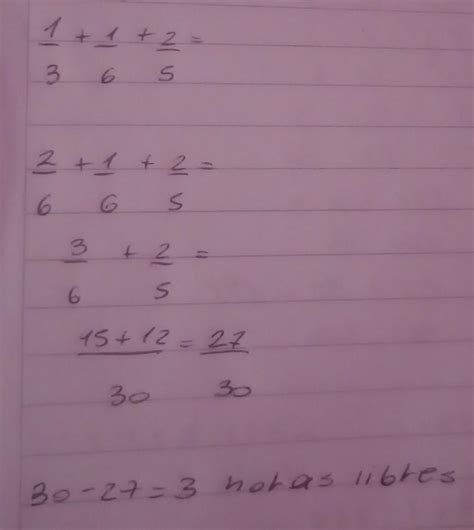 1/3 + 1/6 + 2/5 =
2/6 + 1/6 + 2/5 =
3/6 + 2/5 =
15+12/30 = 27/30
30-27=3 horas libres